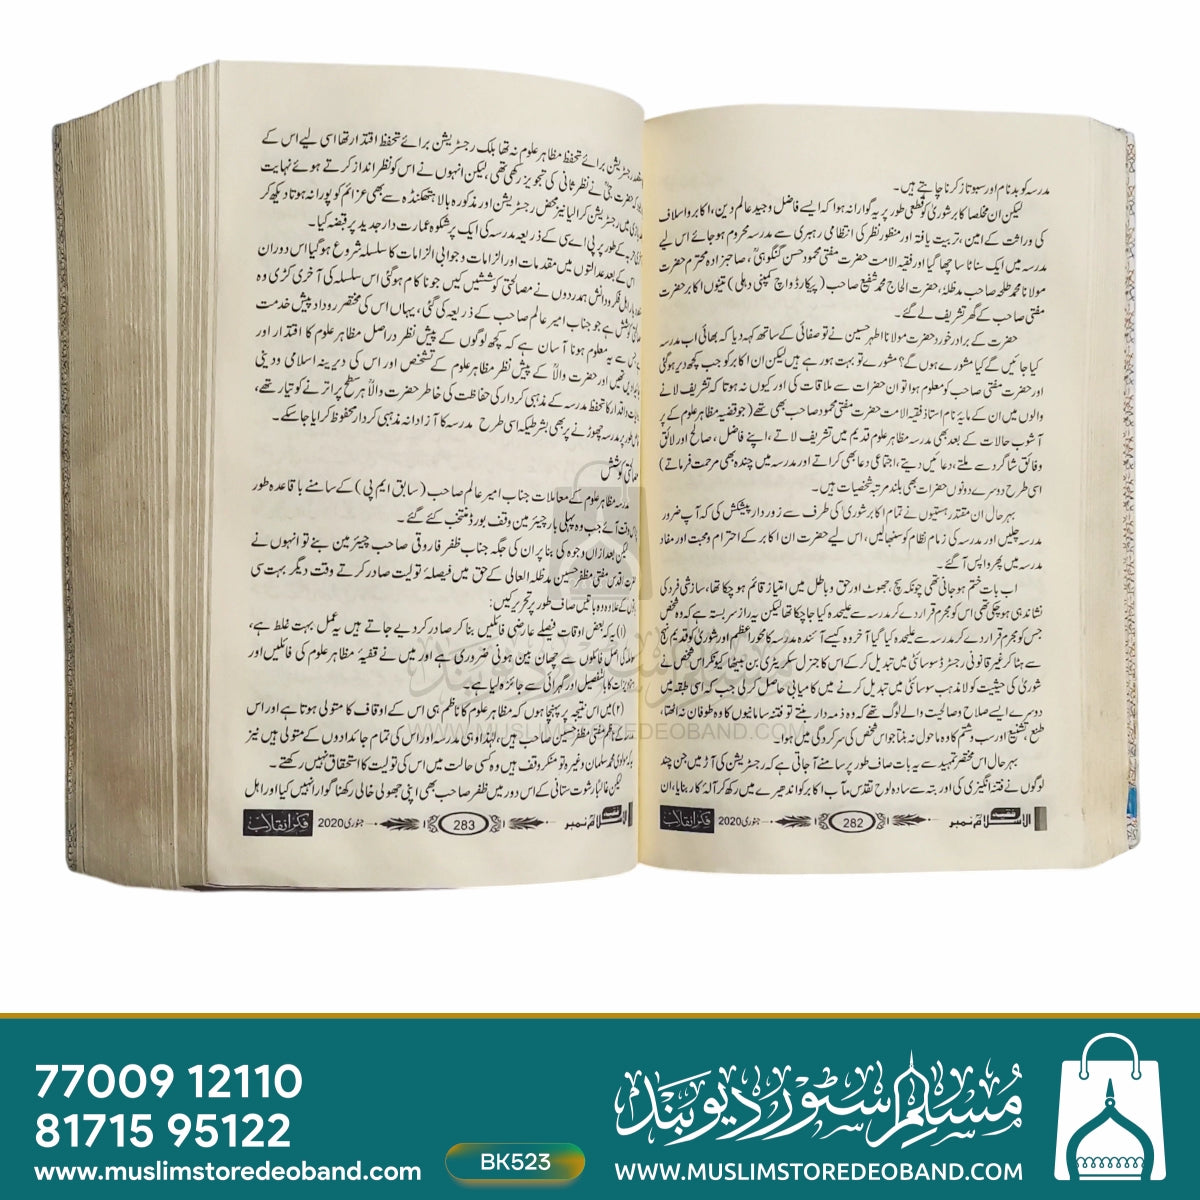 مدرسہ کو بدنام اور سبوتاژ کرنا چاہتے ہیں۔
لیکن ان مخلص اکابر شوریٰ کو قطعی طور پر یہ گوارا نہ ہوا کہ ایسے فاضل وجید عالم دین، اکابر واسلاف
کی وراثت کے امین، تربیت یافتہ اور منظور نظر کی انتظامی رہبری سے مدرسہ محروم ہو جائے اس لیے
مدرسہ میں ایک سناٹا سا چھا گیا اور فقیہ الامت حضرت مفتی محمود حسن گنگوہیؒ، صاحبزادہ محترم حضرت
مولانا محمد طلحہ صاحب مدظلہٗ، حضرت الحاج محمد شفیع صاحب (پیکارڈ واچ کمپنی دہلی) تینوں اکابر حضرت
مفتی صاحب کے گھر تشریف لے گئے۔
حضرت کے برادر خورد حضرت مولانا اطہر حسین نے تو صفائی کے ساتھ کہہ دیا کہ بھائی اب مدرسہ
کیا جائیں گے کیا مشورے ہوں گے؟ مشورے تو بہت ہو رہے ہیں لیکن ان اکابر کو جب کچھ دیر ہو گئی
اور حضرت مفتی صاحب کو معلوم ہوا تو ان حضرات سے ملاقات کی اور کیوں نہ ہوتا کہ تشریف لانے
والوں میں ان کے مایۂ ناز استاذ فقیہ الامت حضرت مفتی محمود صاحب بھی تھے (جو قضیہ مظاہر علوم کے پر
آشوب حالات کے بعد بھی مدرسہ مظاہر علوم قدیم میں تشریف لاتے، اپنے فاضل، صالح اور لائق
وفائق شاگرد سے ملتے، دعائیں دیتے، اجتماعی دعا بھی کراتے اور مدرسہ میں چندہ بھی مرحمت فرماتے)
اسی طرح دوسرے دونوں حضرات بھی بلند مرتبہ شخصیات ہیں۔
بہر حال ان مقتدر ہستیوں نے تمام اکابر شوریٰ کی طرف سے زور دار پیشکش کی کہ آپ ضرور
مدرسہ چلیں اور مدرسہ کی زمام نظام کو سنبھالیں، اس لیے حضرت ان اکابر کے احترام ومحبت اور مفاد
مدرسہ میں پھر واپس آ گئے۔
اب بات ختم ہو جانی تھی چونکہ سچ، جھوٹ اور حق و باطل میں امتیاز قائم ہو چکا تھا، سازشی فرد کی
نشاندہی ہو چکی تھی اس کو مجرم قرار دے کر مدرسہ سے علیحدہ کیا جا چکا تھا لیکن یہ راز سربستہ ہے کہ وہ شخص
جس کو مجرم قرار دے کر مدرسہ سے علیحدہ کیا گیا آخر وہ کیسے آئندہ مدرسہ کا محور اعظم اور شوریٰ کو قدیم نہج
سے ہٹا کر غیر قانونی رجسٹرڈ سوسائٹی میں تبدیل کر کے اس کا جنرل سکریٹری بن بیٹھا کیونکر اس شخص نے
شوریٰ کی حیثیت کو لا مذہب سوسائٹی میں تبدیل کرنے میں کامیابی حاصل کر لی جب کہ اسی طبقہ میں
دوسرے ایسے صلاح وصالحیت والے لوگ تھے کہ وہ ذمہ دار بنتے تو فتنہ سامانیوں کا وہ طوفان نہ اٹھتا،
طعن، تشنیع اور سب وشتم کا وہ ماحول نہ بنتا جو اس شخص کی سرکردگی میں ہوا۔
بہر حال اس مختصر تمہید سے یہ بات صاف طور پر سامنے آ جاتی ہے کہ رجسٹریشن کی آڑ میں جن چند
لوگوں نے فتنہ انگیزی کی اور بتہ سے سادہ لوح تقدس مآب اکابر کو اندھیرے میں رکھ کر آلۂ کار بنایا، ان
فقیہ الاسلامؒ نمبر 282 جنوری 2020 فکر انقلاب
رجسٹریشن برائے تحفظ مظاہر علوم نہ تھا بلکہ رجسٹریشن برائے تحفظ اقتدار تھا اسی لیے اس کے
حضرت جیؒ نے نظر ثانی کی تجویز رکھی تھی، لیکن انہوں نے اس کو نظر انداز کرتے ہوئے نہایت
میں رجسٹریشن کرالیا نیز محض رجسٹریشن اور مذکورہ بالا ہتھکنڈہ سے بھی عزائم کو پورا نہ ہوتا دیکھ کر
کے طور پر پی اے سی کے ذریعہ مدرسہ کی ایک پر شکوہ عمارت دار جدید پر قبضہ کیا۔
اس کے بعد عدالتوں میں مقدمات اور الزامات وجوابی الزامات کا سلسلہ شروع ہو گیا اس دوران
اہل فکر ودانش ہمدردوں نے مصالحتی کوششیں کیں جو ناکام ہو گئی اس سلسلہ کی آخری کڑی وہ
کوشش ہے جو جناب امیر عالم صاحب کے ذریعہ کی گئی، یہاں اس کی مختصر روداد پیش خدمت
سے یہ معلوم ہونا آسان ہے کہ کچھ لوگوں کے پیش نظر دراصل مظاہر علوم کا اقتدار اور
تھیں اور حضرت والاؒ کے پیش نظر مظاہر علوم کے تشخص اور اس کی دیرینہ اسلامی ودینی
واقدار کا تحفظ مدرسہ کے مذہبی کردار کی حفاظت کی خاطر حضرت والاؒ ہر سطح پر اترنے کو تیار تھے،
طور پر مدرسہ چھوڑنے پر بھی بشرطیکہ اسی طرح مدرسہ کا آزادانہ مذہبی کردار محفوظ کرایا جا سکے۔
مصالحتی کوشش
مدرسہ مظاہر علوم کے معاملات جناب امیر عالم صاحب (سابق ایم پی) کے سامنے باقاعدہ طور
وقت آئے جب وہ پہلی بار چیئرمین وقف بورڈ منتخب کئے گئے۔
لیکن بعد ازاں وجوہ کی بنا پر ان کی جگہ جناب ظفر فاروقی صاحب چیئرمین بنے تو انہوں نے
اقدس مفتی مظفر حسین مدظلہ العالی کے حق میں فیصلۂ تولیت صادر کرتے وقت دیگر بہت سی
کے علاوہ دو باتیں صاف طور پر تحریر کیں:
(۱) یہ کہ بعض اوقات فیصلے عارضی فائلیں بنا کر صادر کر دیے جاتے ہیں یہ عمل بہت غلط ہے،
کی اصل فائلوں سے چھان بین ہونی ضروری ہے اور میں نے قضیہ مظاہر علوم کی فائلیں اور
کا بالتفصیل اور گہرائی سے جائزہ لیا ہے۔
(۲) میں اس نتیجہ پر پہنچا ہوں کہ مظاہر علوم کا ناظم ہی اس کے اوقاف کا متولی ہوتا ہے اور اس
کے ناظم مفتی مظفر حسین صاحب ہیں، لہٰذا وہی مدرسہ اور اس کی تمام جائدادوں کے متولی ہیں نیز
مولوی محمد سلمان وغیرہ تو منکر وقف ہیں وہ کسی حالت میں اس کی تولیت کا استحقاق نہیں رکھتے۔
لیکن غالباً رشوت ستانی کے اس دور میں ظفر صاحب بھی اپنی جھولی خالی رکھنا گوارا نہیں کیا اور اہل
فقیہ الاسلامؒ نمبر 283 جنوری 2020 فکر انقلاب
WWW.MUSLIMSTOREDEOBAND.COM
77009 12110
81715 95122
www.muslimstoredeoband.com
BK523
مسلم سٹور دیوبند
WWW.MUSLIMSTOREDEOBAND.COM